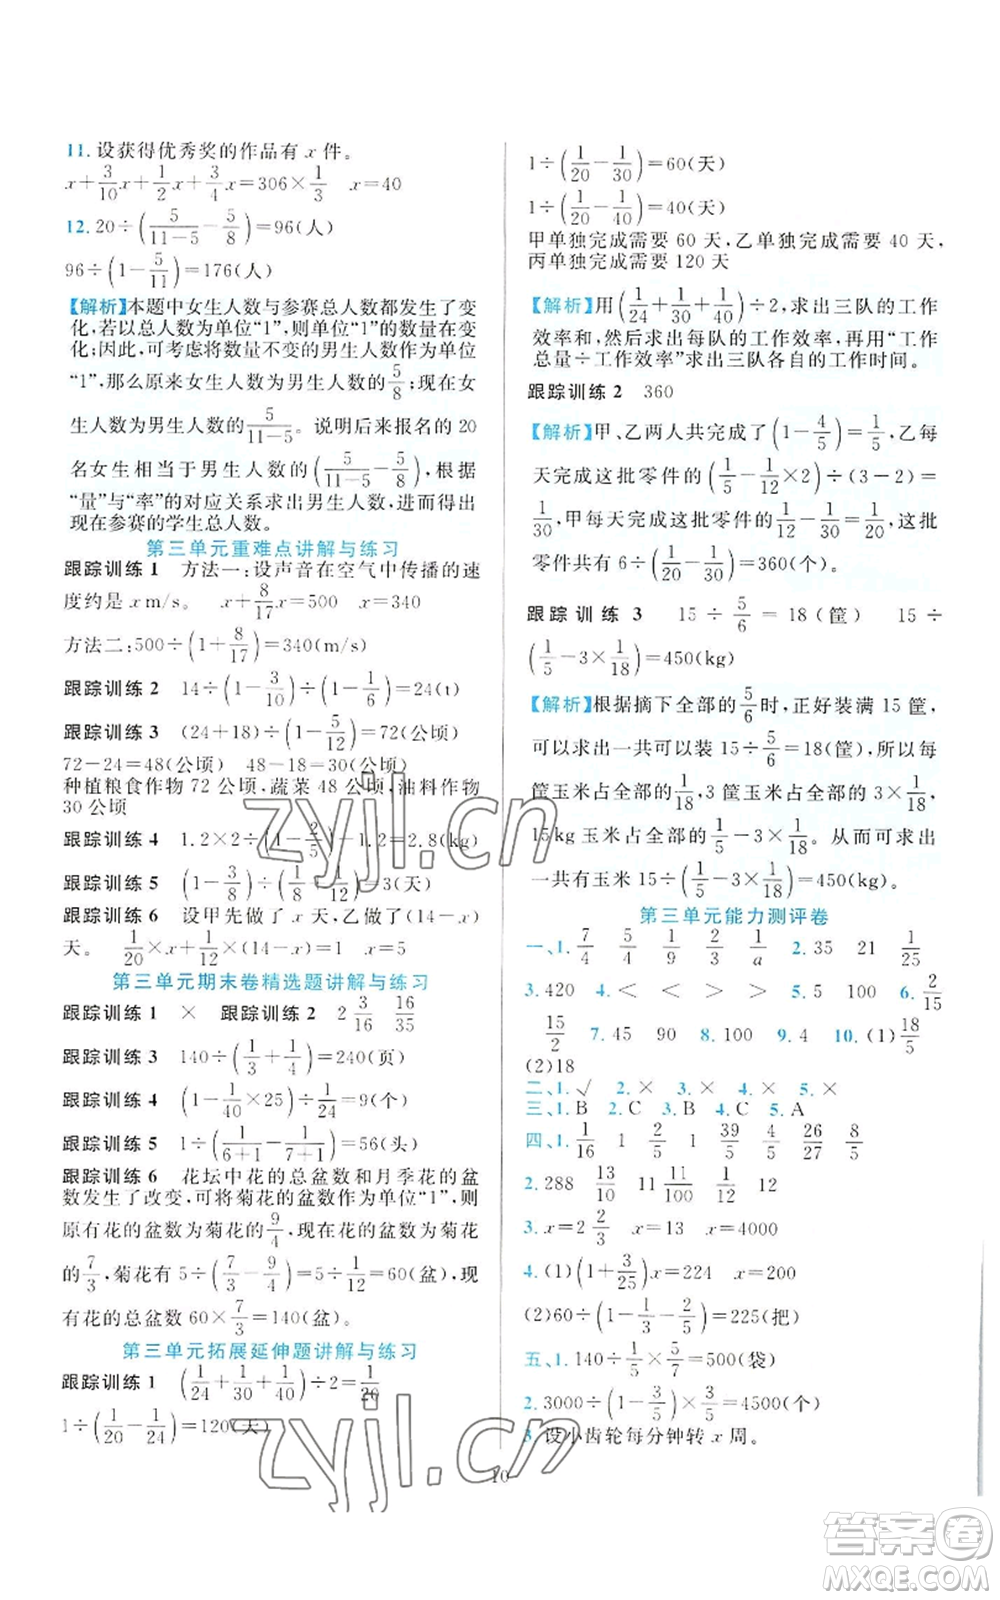 11. 设获得优秀奖的作品有 x 件。
x+3/10x+1/2x+3/4x=306×1/3 x=40
12. 20÷(5/(11-5)-5/8)=96(人)
96÷(1-5/11)=176(人)
【解析】本题中女生人数与参赛总人数都发生了变
化,若以总人数为单位“1”,则单位“1”的数量在变
化;因此,可考虑将数量不变的男生人数作为单位
“1”,那么原来女生人数为男生人数的5/8;现在女
生人数为男生人数的5/(11-5)。说明后来报名的 20
名女生相当于男生人数的(5/(11-5)-5/8),根据
“量”与“率”的对应关系求出男生人数,进而得出
现在参赛的学生总人数。
第三单元重难点讲解与练习
跟踪训练 1 方法一:设声音在空气中传播的速
度约是 x m/s。 x+8/17x=500 x=340
方法二:500÷(1+8/17)=340(m/s)
跟踪训练 2 14÷(1-3/10)÷(1-1/6)=24(t)
跟踪训练 3 (24+18)÷(1-5/12)=72(公顷)
72-24=48(公顷) 48-18=30(公顷)
种植粮食作物 72 公顷,蔬菜 48 公顷,油料作物
30 公顷
跟踪训练 4 1.2×2÷(1-2/5)-1.2=2.8(kg)
跟踪训练 5 (1-1/9)÷(1/8-1/9)=3(天)
跟踪训练 6 设甲先做了 x 天,乙做了(14-x)
天。 1/20x+1/12×(14-x)=1 x=5
第三单元期末卷精选题讲解与练习
跟踪训练 1 × 跟踪训练 2 2 3/16 16/35
跟踪训练 3 140÷(1/3+1/4)=240(页)
跟踪训练 4 (1-1/40×25)÷1/24=9(个)
跟踪训练 5 1÷(1/(6+1)-1/(7+1))=56(头)
跟踪训练 6 花坛中花的总盆数和月季花的盆
数发生了改变,可将菊花的盆数作为单位“1”,则
原有花的盆数为菊花的9/4,现在花的盆数为菊花
的7/3,菊花有 5÷(7/3-9/4)=5÷1/12=60(盆),现
有花的总盆数 60×7/3=140(盆)。
第三单元拓展延伸题讲解与练习
跟踪训练 1 (1/24+1/30+1/40)÷2=1/20
1÷(1/20-1/24)=120(天)
1÷(1/20-1/30)=60(天)
1÷(1/20-1/40)=40(天)
甲单独完成需要 60 天,乙单独完成需要 40 天,
丙单独完成需要 120 天
【解析】用(1/24+1/30+1/40)÷2,求出三队的工作
效率和,然后求出每队的工作效率,再用“工作
总量÷工作效率”求出三队各自的工作时间。
跟踪训练 2 360
【解析】甲、乙两人共完成了(1-4/5)=1/5,乙每
天完成这批零件的(1/5-1/12×2)÷(3-2)=
1/30,甲每天完成这批零件的1/12-1/30=1/20,这批
零件共有 6÷(1/20-1/30)=360(个)
跟踪训练 3 15÷5/6=18(筐) 15÷
(1/5-3×1/18)=450(kg)
【解析】根据摘下全部的5/6时,正好装满 15 筐,
可以求出一共可以装 15÷5/6=18(筐),所以 3
筐玉米占全部的 3×1/18,3 筐玉米占全部的 3×1/18,
15 kg 玉米占全部的1/5-3×1/18。从而可求出
一共有玉米 15÷(1/5-3×1/18)=450(kg)。
第三单元能力测评卷
一、1. 7/4 5/4 1/2 1/a 2. 35 21 1/25
3. 420 4. < < > > 5. 5 100 6. 2/15
15/2 7. 45 90 8. 100 9. 4 10. (1)18/5
(2)18
二、1. √ 2. × 3. × 4. × 5. ×
三、1. B 2. C 3. B 4. C 5. A
四、1. 1/16 1 2/5 4/5 26/27 8/5
2. 288 13/10 11/100 11/12 1
3. x=2 2/3 x=13 x=4000
4. (1)(1+3/25)x=224 x=200
(2)60÷(1-1/3-2/5)=225(把)
五、1. 2100×1/3×5/7=500(袋)
2. 3000÷(1-1/3)=4500(个)
3. 设小齿轮每分钟转 x 周。
10
zyjl.cn
zyjl.cn
答案圈
MXQE.COM